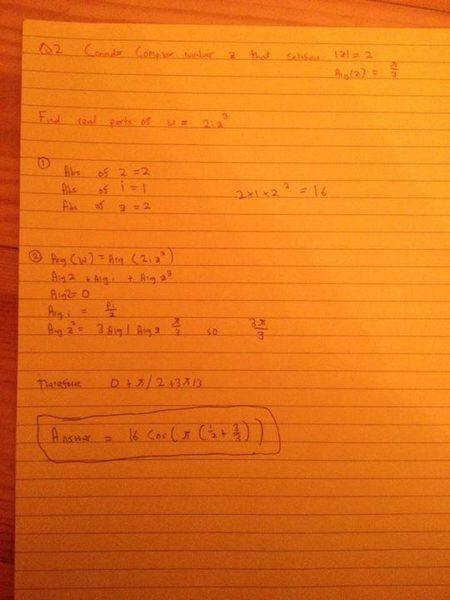 Q2 Consider Complex number z that satisfies |z| = 2
Arg(z) = π/3
Find real parts of w = 2iz³
①
Abs of 2 = 2
Abs of i = 1
Abs of z = 2
2×1×2³ = 16
② Arg(w) = Arg(2iz³)
Arg2 + Arg i + Arg z³
Arg2 = 0
Arg i = Pi/2
Arg z³ = 3 Arg / Arg z π/3 so 3π/3
Therefore 0 + π/2 + 3π/3
Answer = 16 Cos(π(1/2 + 3/3))